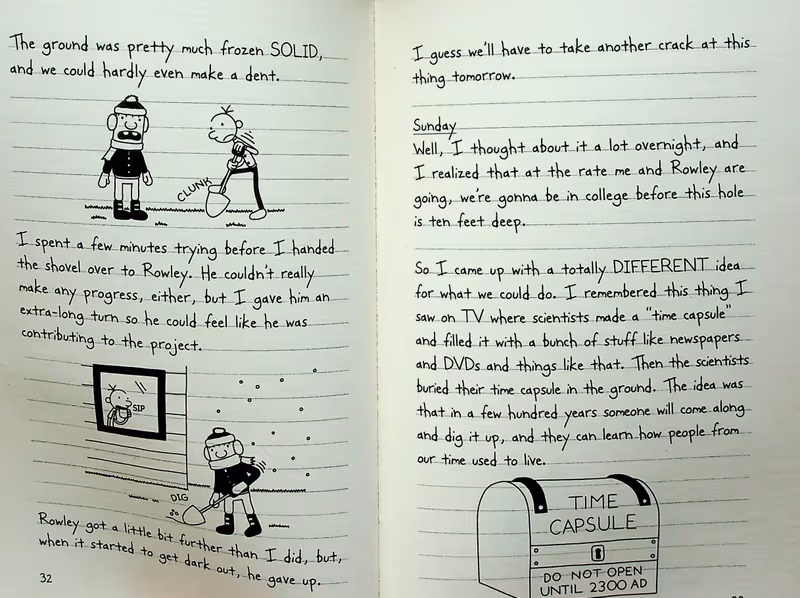 The ground was pretty much frozen SOLID,
and we could hardly even make a dent.
CLUNK
I spent a few minutes trying before I handed
the shovel over to Rowley. He couldn't really
make any progress, either, but I gave him an
extra-long turn so he could feel like he was
contributing to the project.
SIP
DIG
Rowley got a little bit further than I did, but,
when it started to get dark out, he gave up.
32
I guess we'll have to take another crack at this
thing tomorrow.
Sunday
Well, I thought about it a lot overnight, and
I realized that at the rate me and Rowley are
going, we're gonna be in college before this hole
is ten feet deep.
So I came up with a totally DIFFERENT idea
for what we could do. I remembered this thing I
saw on TV where scientists made a "time capsule"
and filled it with a bunch of stuff like newspapers
and DVDs and things like that. Then the scientists
buried their time capsule in the ground. The idea was
that in a few hundred years someone will come along
and dig it up, and they can learn how people from
our time used to live.
TIME
CAPSULE
DO NOT OPEN
UNTIL 2300 AD